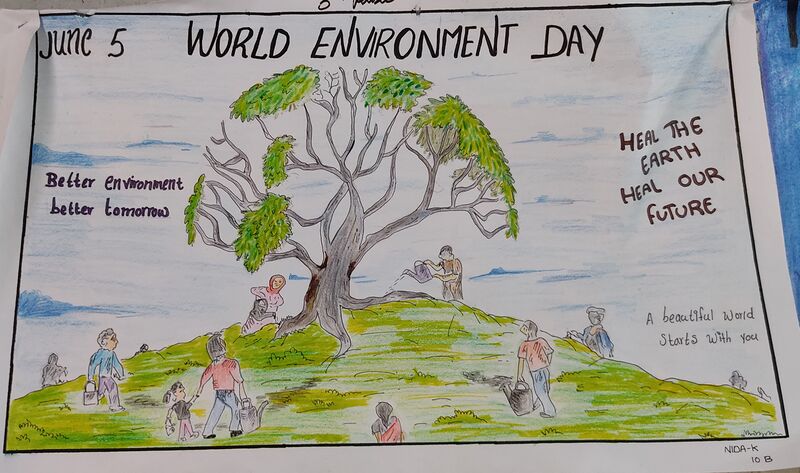 June 5 WORLD ENVIRONMENT DAY
Better environment
better tomorrow
HEAL THE
EARTH
HEAL OUR
FUTURE
A beautiful World
Starts with you
NIDA-K
10 B